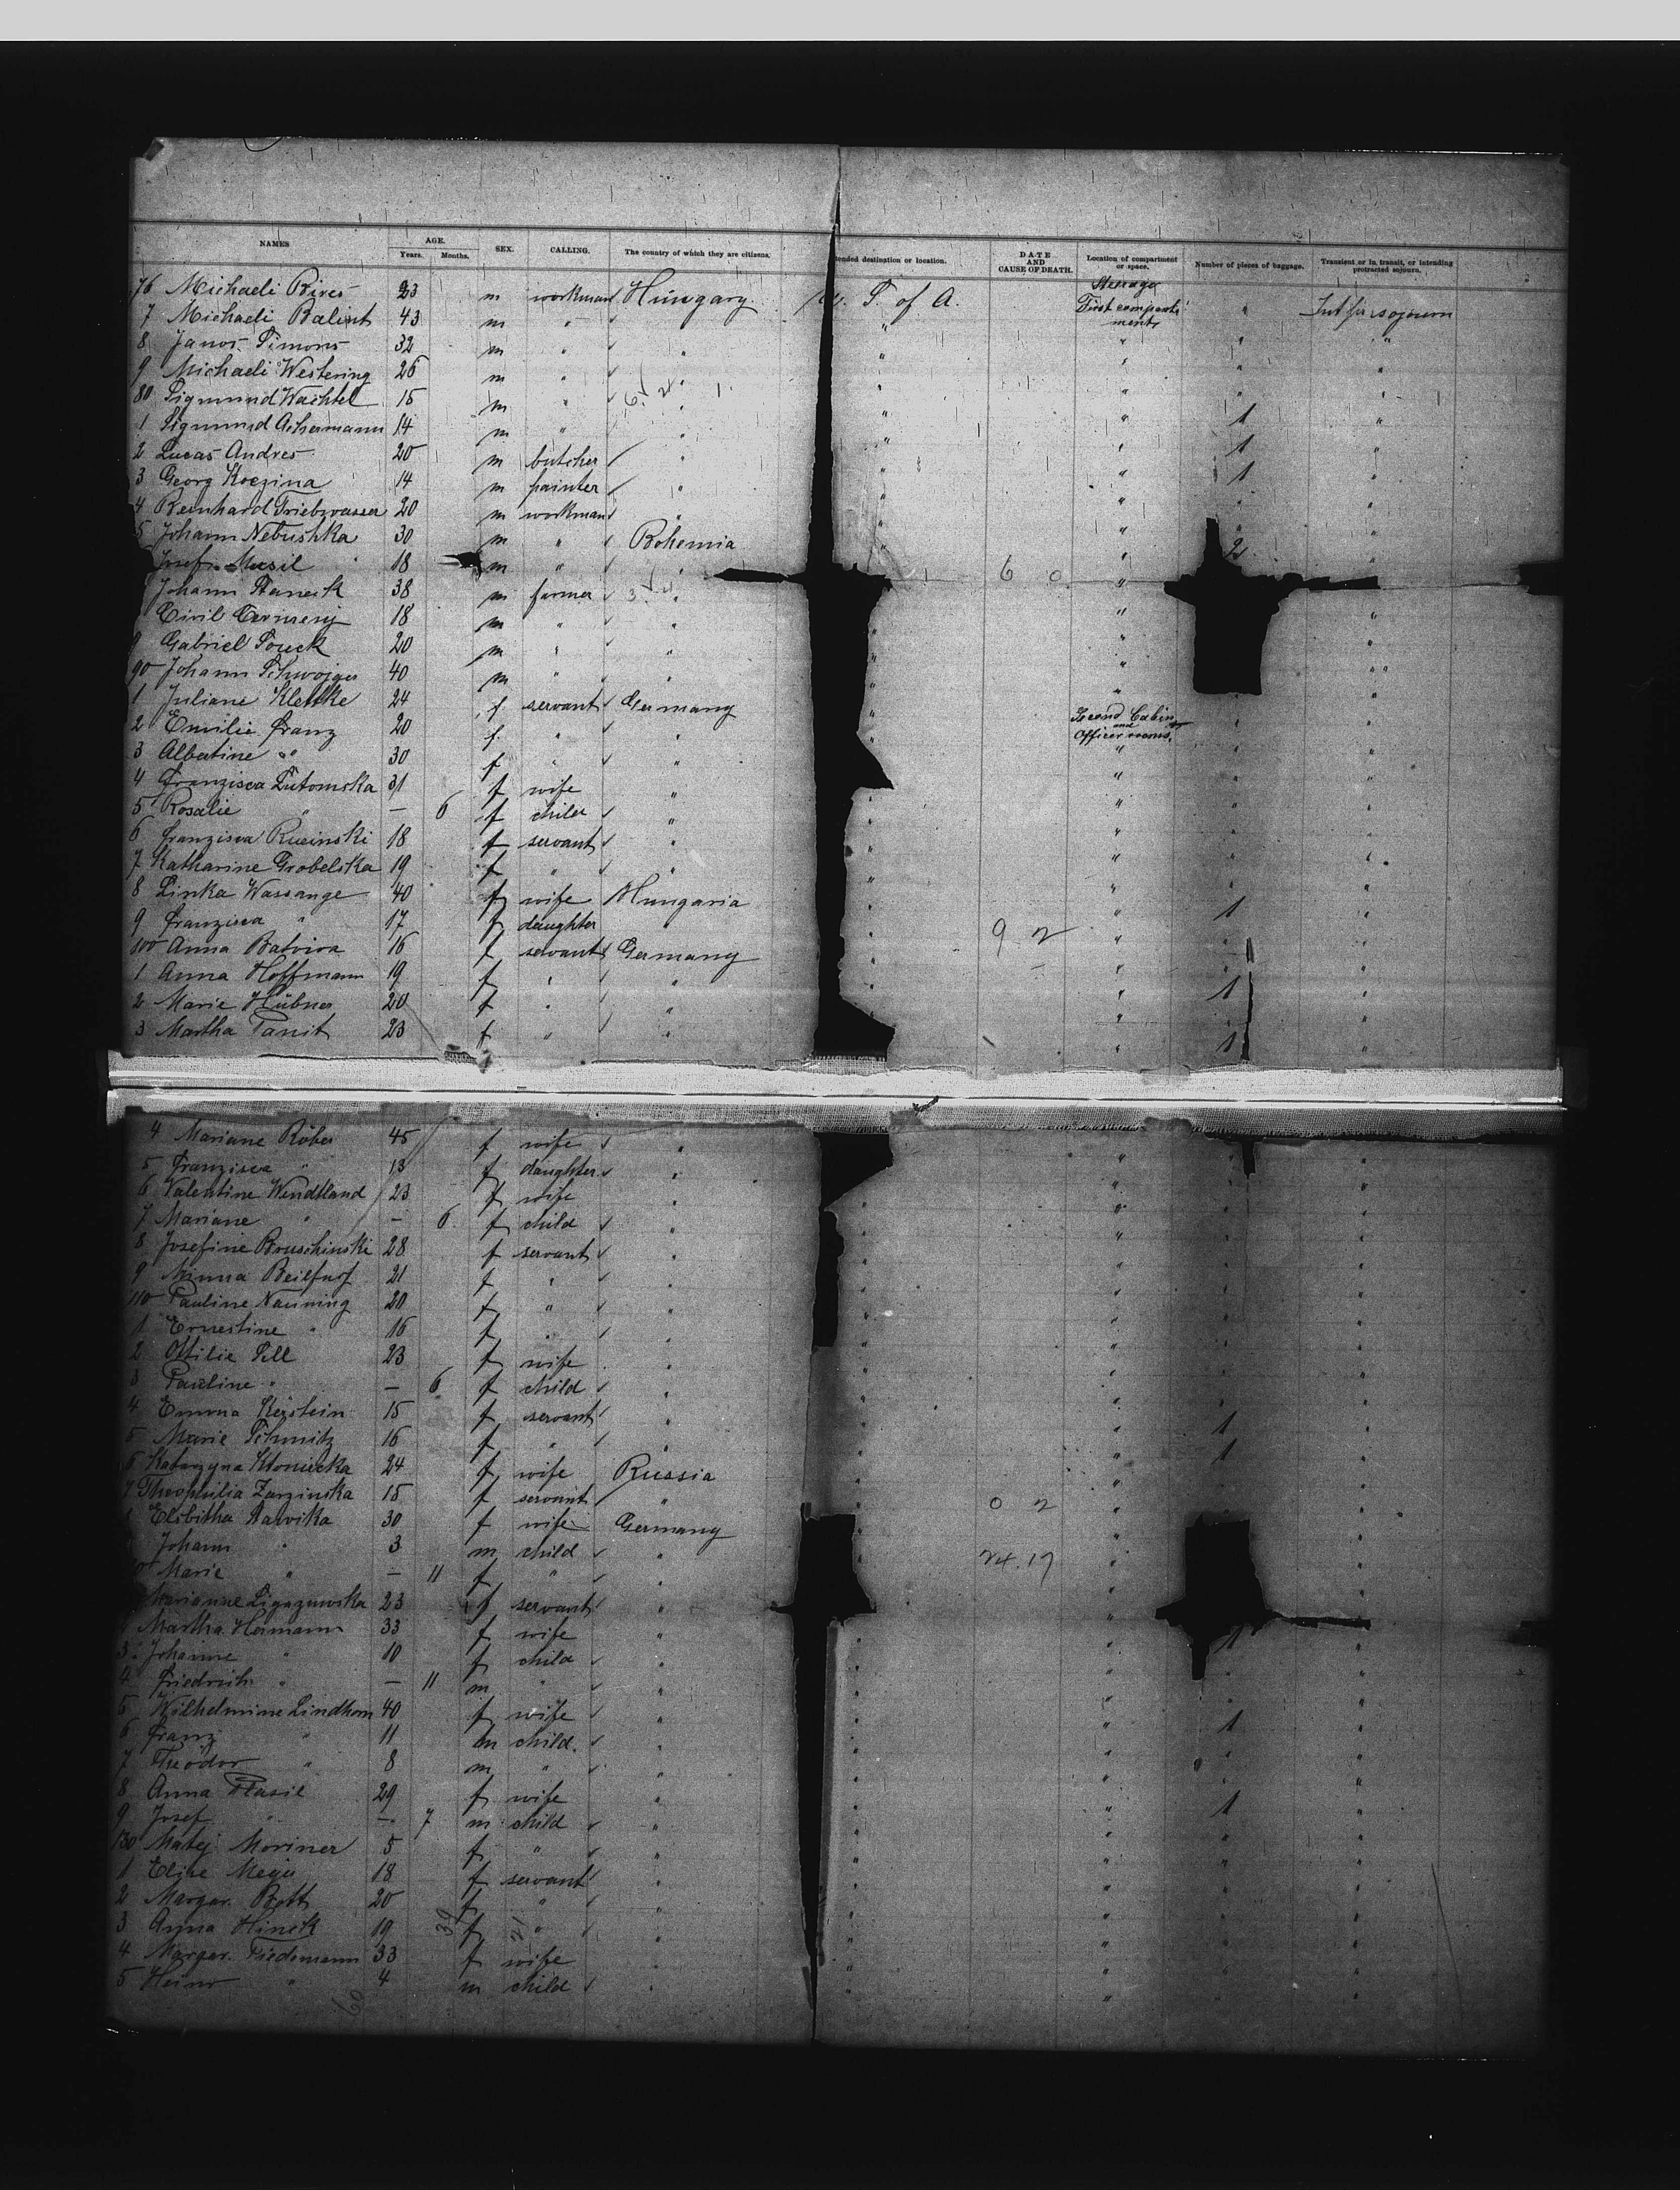 NAMES AGE. Years. Months. SEX. CALLING. The country of which they are citizens. tended destination or location. DATE AND CAUSE OF DEATH. Location of compartment or space. Number of pieces of baggage. Transient or in transit, or intending protracted sojourn.
76 Michaeli Bires 23 m workman Hungary S. of A. Steerage First compartment " Int. pr. sojourn
7 Michaeli Balint 43 m " " " "
8 Janos Simons 32 m " " " " "
9 Michaeli Westering 26 m " " " " "
80 Sigmund Wachtel 15 m " " " " 1 "
1 Sigmund Achermann 14 m " " " " 1 "
2 Lucas Andres 20 m butcher " " " 1 "
3 Georg Koczina 14 m painter " " " "
4 Reinhard Triebwasser 20 m workman " " " "
5 Johann Nebushka 30 m " Bohemia " " 2 "
Josef Musil 18 m " " 6 0 " "
Johann Staneck 38 m farmer " " "
18 m " " " "
9 Gabriel Soucek 20 m " " " "
90 Johann 40 m " " " "
1 Juliane Klettke 24 f servant Germany " Second Cabin and Officer rooms. "
2 Emilie Franz 20 f " " " " "
3 Albertine " 30 f " " " " "
4 Franzisca Lutomska 31 f wife " " " "
5 Rosalie " — 6 f child " " " "
6 Franzisca Rucinski 18 f servant " " " "
7 Katharine Grobelska 19 f " " " " "
8 Linka Wassange 40 f wife Hungaria " " 1 "
9 Franzisca " 17 f daughter 9 2 " " "
100 Anna Batvira 16 f servant Germany " " "
1 Anna Hoffmann 19 f " " " 1 "
2 Marie Hübner 20 f " " " "
3 Martha Panit 23 f " " " 1 "
4 Mariane Röber 45 f wife " " " "
5 Franzisca " 13 f daughter " " " "
6 Valentine Wendtland 23 f wife " " " "
7 Mariane " — 6 f child " " " "
8 Josefine Bruschinski 28 f servant " " " "
9 Minna 21 f " " " " "
110 Pauline Nauning 20 f " " " " "
1 Ernestine " 16 f " " " " "
2 Ottilie Sell 23 f wife " " " "
3 Pauline " — 6 f child " " " "
4 Emma Kerstein 15 f servant " " 1 "
5 Marie Schmitz 16 f " " " 1 "
6 Katarzyna Kloniecka 24 f wife Russia " " "
7 Theophilia Zarzinska 15 f servant " 0 2 " " "
Elsbitha 30 f wife Germany " "
Johann " 3 m child " 24.17 " "
Marie " — 11 f " " " "
Marianne 23 f servant " " "
Martha Hermann 33 f wife " " 1 "
3 Johanne " 10 f child " " " "
4 Friedrich " — 11 m " " " " "
5 Wilhelmine Lindhom 40 f wife " " 1 "
6 Franz " 11 m child " " " "
7 Theodor " 8 m " " " " "
8 Anna Stasil 29 f wife " " 1 "
9 Josef " — 7 m child " " " "
130 Matej Moriner 5 f " " " " "
1 Elise Meyer 18 f servant " " " "
2 Margar. Bott 20 f " " " " "
3 Anna Hinck 19 39 f 21 " " " " "
4 Margar. Tiedemann 33 f wife " " " "
5 Heinr " 4 m child " " " "
60